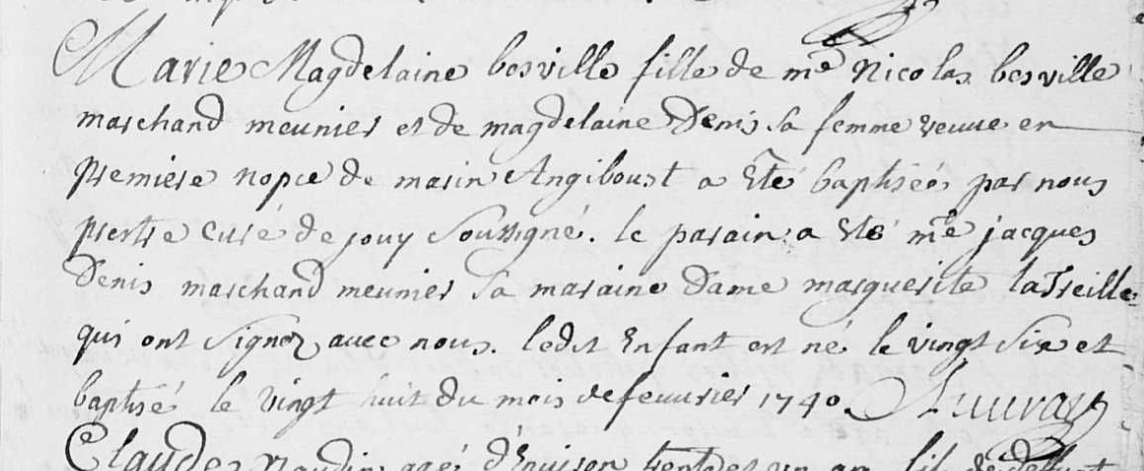 Marie Magdelaine bosville fille de me Nicolas bosville
marchand meunier et de magdelaine Denis sa femme veuve en
premiere nopce de marin Angiboust a été baptiséé par nous
prertre curé de jouy soussigné. le parain a été me jacques
Denis marchand meunier la maraine dame marguerite latreille
qui ont signez avec nous. ledit Enfant est né le vingt six et
baptisé le vingt huit du mois de fevurier 1740.
Claude agé d'Environ trente et un an fils de